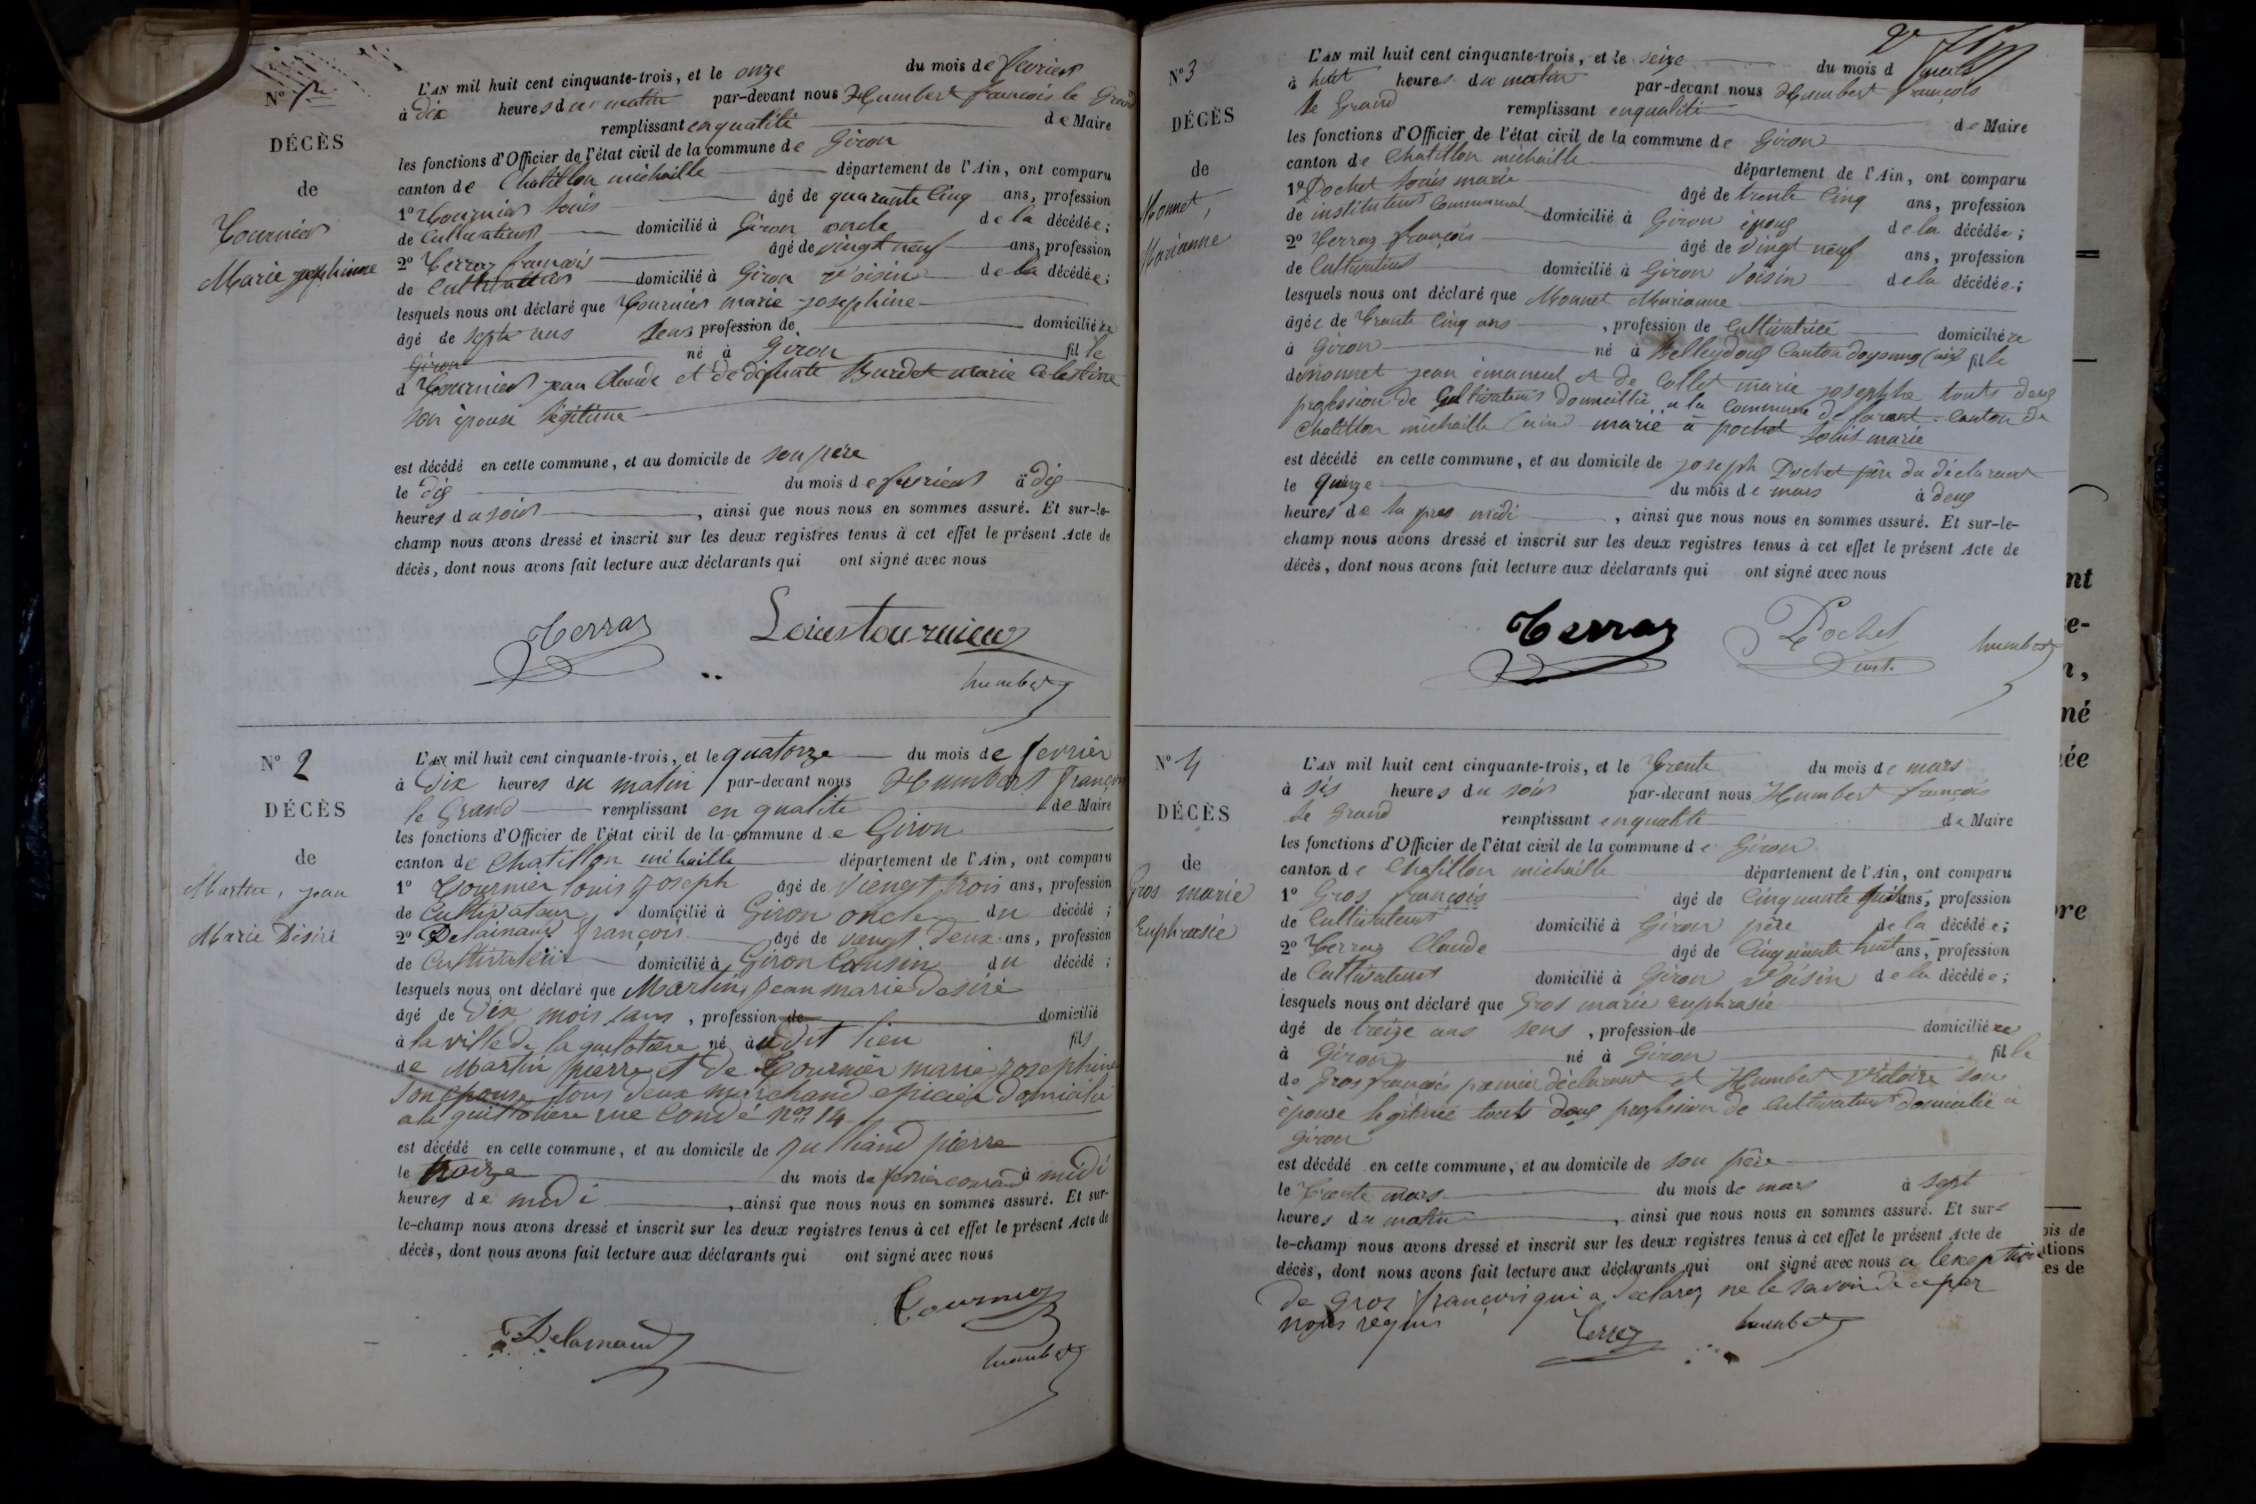 N° 1
DÉCÈS
de
Tournier
Marie josephinne
L'AN mil huit cent cinquante-trois, et le onze du mois de fevrier
à dix heures du matin par-devant nous Humbert françois le Grand
remplissant enqualité de Maire
les fonctions d'Officier de l'état civil de la commune de Giron
canton de Chatillon michaille département de l'Ain, ont comparu
1° Tournier Louis âgé de quarante cinq ans, profession
de Cultivateur domicilié à Giron oncle de la décédée;
2° Terraz françois âgé de vingt neuf ans, profession
de Cultivateur domicilié à Giron voisin de la décédée;
lesquels nous ont déclaré que Tournier marie josephine
âgé de sept ans sens profession de domiciliéze
Giron né à Giron fille
d Tournier jean Claude et de défunte Burdet marie Celestine
son épouse légitime
est décédé en cette commune, et au domicile de son père
le dix du mois de fevrier à dix
heures du soir, ainsi que nous nous en sommes assuré. Et sur-le-
champ nous avons dressé et inscrit sur les deux registres tenus à cet effet le présent Acte de
décès, dont nous avons fait lecture aux déclarants qui ont signé avec nous
Terraz Louis tournier
humbert
N° 2
DÉCÈS
de
Martin, jean
Marie Désiré
L'AN mil huit cent cinquante-trois, et le quatorze du mois de fevrier
à Dix heures du matin par-devant nous Humbert françois
le Grand remplissant en qualité de Maire
les fonctions d'Officier de l'état civil de la commune de Giron
canton de Chatillon michaille département de l'Ain, ont comparu
1° Tournier louis joseph âgé de Viengt trois ans, profession
de Cultivateur domicilié à Giron oncle du décédé;
2° Delainaud françois âgé de vaengt deux ans, profession
de Cultivateur domicilié à Giron Cousin du décédé;
lesquels nous ont déclaré que Martin jean marie desiré
âgé de Dix mois sans, profession de domicilié
à la ville de la guilotière né audit lieu fils
de Martin pierre et de Tournier marie josephine
son épouse tous deux marchand epicier domicilié
a la guillotiere rue Condé n° 14
est décédé en cette commune, et au domicile de pierre
le traize du mois de fevrier courand à midi
heures de midi, ainsi que nous nous en sommes assuré. Et sur-
le-champ nous avons dressé et inscrit sur les deux registres tenus à cet effet le présent Acte de
décès, dont nous avons fait lecture aux déclarants qui ont signé avec nous
Tournier
Delainaud
humbert
N° 3
DÉCÈS
de
Monnet,
Marianne
L'AN mil huit cent cinquante-trois, et le seize du mois d mars
à huit heures du matin par-devant nous Humbert françois
le Grand remplissant enqualité de Maire
les fonctions d'Officier de l'état civil de la commune de Giron
canton de Chatillon michaille département de l'Ain, ont comparu
1° Pochet Louis marie âgé de trente cinq ans, profession
de instituteur Communal domicilié à Giron époux de la décédée;
2° Terraz françois âgé de vingt neuf ans, profession
de Cultivateur domicilié à Giron Voisin de la décédée;
lesquels nous ont déclaré que Monnet Marianne
âgée de Trante Cinq ans, profession de Cultivatrice domiciliéze
à Giron né à Belleydoux Canton doyonnax (ain) fille
de monnet jean émanuel et de Collet marie josephte touts deux
profession de Cultivateur domicillié a la commune de canton de
Chatillon michaille (ain) marié à pochet Louis marie
est décédé en cette commune, et au domicile de joseph Pochet père du déclarant
le quinze du mois de mars à deux
heures de la pres midi, ainsi que nous nous en sommes assuré. Et sur-le-
champ nous avons dressé et inscrit sur les deux registres tenus à cet effet le présent Acte de
décès, dont nous avons fait lecture aux déclarants qui ont signé avec nous
Terraz Pochet humbert
inst.
N° 4
DÉCÈS
de
Gros marie
Euphrasie
L'AN mil huit cent cinquante-trois, et le Trente du mois de mars
à sis heures du soir par-devant nous Humbert françois
le Grand remplissant enqualité de Maire
les fonctions d'Officier de l'état civil de la commune de Giron
canton de Chatillon michaille département de l'Ain, ont comparu
1° Gros françois âgé de Cinquante ans, profession
de Cultivateur domicilié à Giron père de la décédée;
2° Terraz Claude âgé de Cinquante huit ans, profession
de Cultivateur domicilié à Giron Voisin de la décédée;
lesquels nous ont déclaré que Gros marie euphrasie
âgé de treize ans sens, profession de domiciliéze
à Giron né à Giron fille
de Gros françois premier déclarant et Humbert Victoire son
épouse légitime touts deux profession de Cultivateur domicilié a
Giron
est décédé en cette commune, et au domicile de son père
le Trente mars du mois de mars à sept
heures du matin, ainsi que nous nous en sommes assuré. Et sur-
le-champ nous avons dressé et inscrit sur les deux registres tenus à cet effet le présent Acte de
décès, dont nous avons fait lecture aux déclarants qui ont signé avec nous a lexeption
de gros françois qui a declarez ne le savoir de ce par
nous requis
Terraz humbert